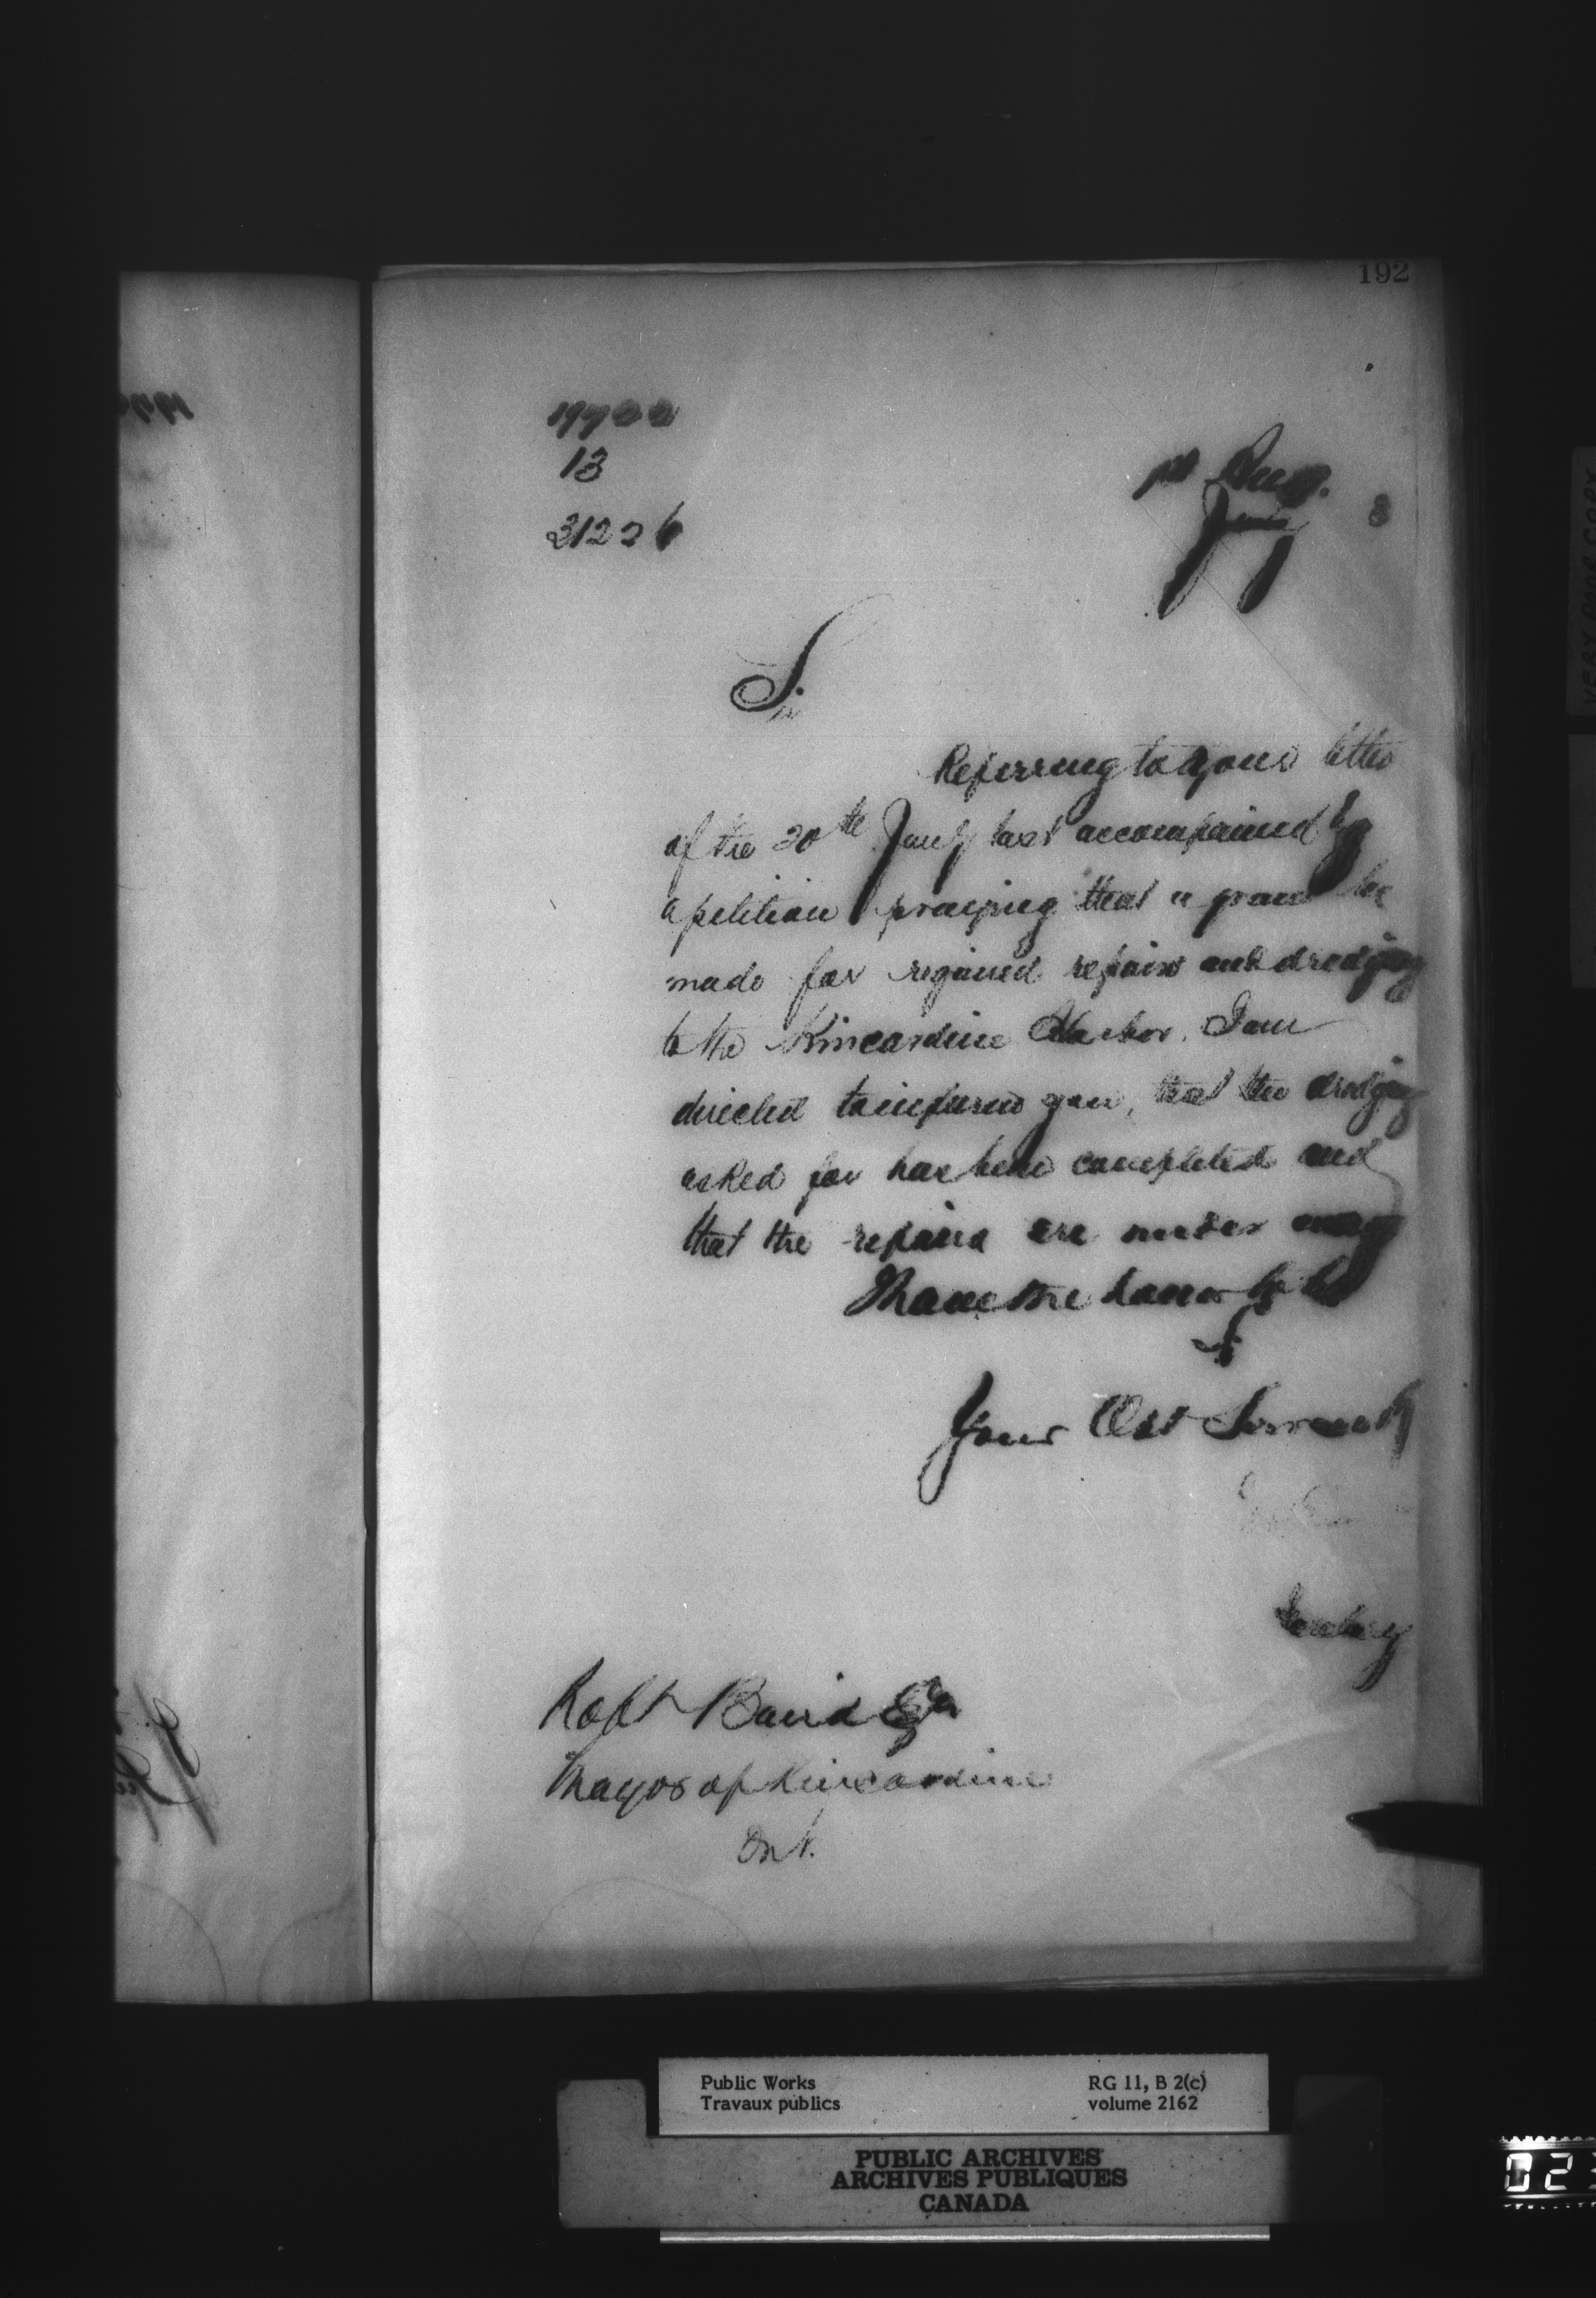 192
13
1st Aug. 3
Sir
Referring to your letter
of the 20th Jany last accompanied by
a petition praying that a grant be
made for required repairs and dredging
to the Kincardine Harbor. I am
directed to inform you, that the dredging
asked for has been completed and
that the repairs are under way
I have the honor to be
Sir
Your Obt Servant
Secretary
Robt Baird Esqr
Mayor of Kincardine
Ont.
VERY POOR COPY
Public Works
Travaux publics
RG 11, B 2(c)
volume 2162
PUBLIC ARCHIVES
ARCHIVES PUBLIQUES
CANADA